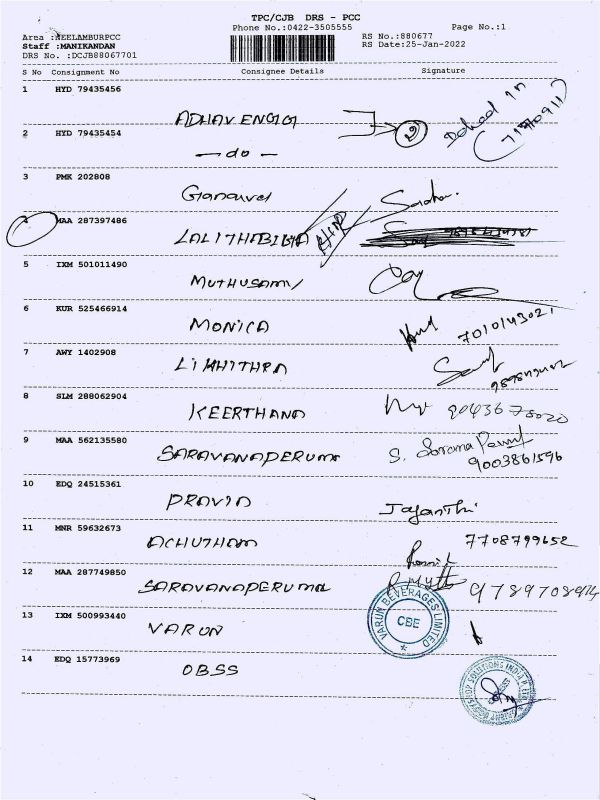 TPC/CJB DRS - PCC
Phone No.:0422-3505555 Page No.:1
Area :NEELAMBURPCC RS No.:880677
Staff :MANIKANDAN RS Date:25-Jan-2022
DRS No. :DCJB88067701
S No Consignment No Consignee Details Signature
1 HYD 79435456
ADHAV ENGG
2 HYD 79435454
— do —
3 PMK 202808
Gnanavel
4 MAA 287397486
LALITHABIGIA
5 IXM 501011490
MUTHUSAMY
6 KUR 525466914
MONICA 7010143021
7 AWY 1402908
LIKHITHRA
8 SLM 288062904
KEERTHANA
9 MAA 562135580
SARAVANAPERUMA S.
9003861596
10 EDQ 24515361
PRAVIN Jayanthi
11 MNR 59632673
ACHUTHAM 7708799652
12 MAA 287749850
SARAVANAPERUMA
13 IXM 500993440
VARUN
VARUN BEVERAGES LIMITED
CBE
14 EDQ 15773969
OBSS
SOLUTIONS INDIA P LTD